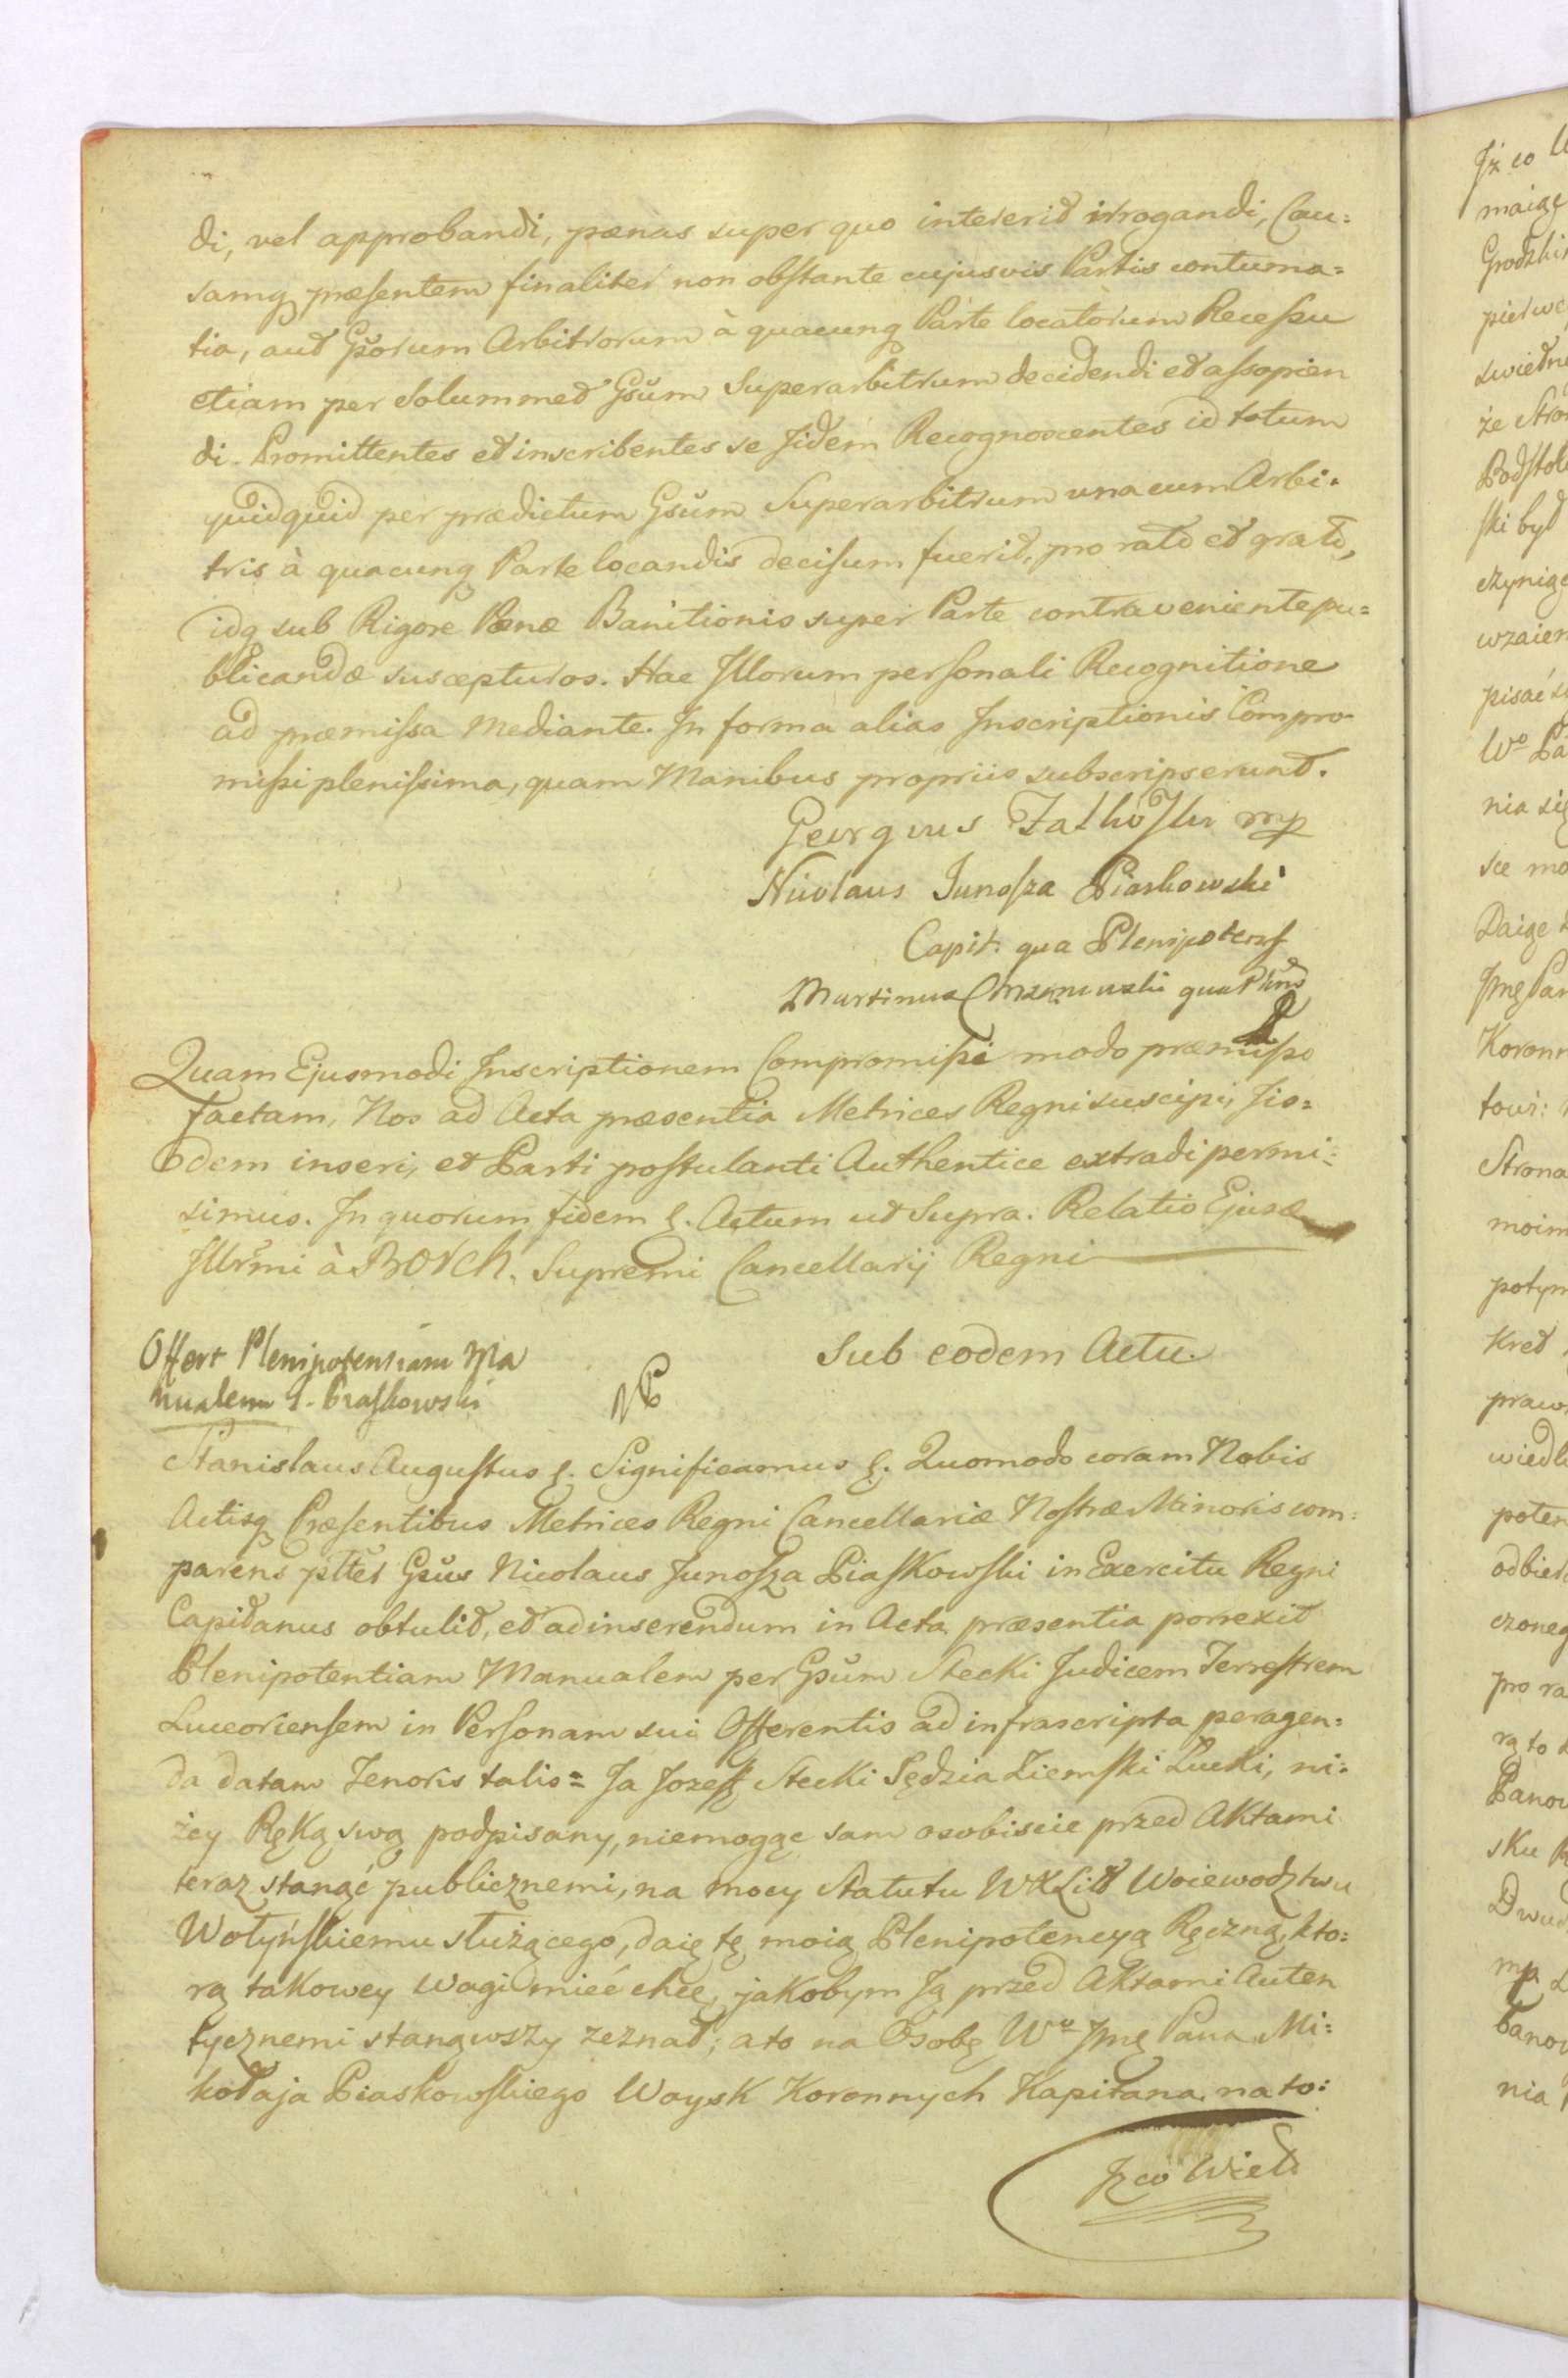 di, vel approbandi, pœnas super quo intererit irrogandi, Cau:
samq præsentem finaliter non obstante cujusvis Partis contuma=
tia, aut Gsorum Arbitrorum à quacunq Parte locatorum Recessu
etiam per solummet Gsum Superarbitrum decidendi et assopien
di. Promittentes et inscribentes se Iidem Recognoscentes id totum
quidquid per prædictum Gsum Superarbitrum una cum Arbi:
tris à quacunq Parte locandis decisum fuerit, pro rato et grato,
idq sub Rigore Pœnæ Banitionis super Parte contraveniente pu=
blicandæ suscepturos. Hac Illorum personali Recognitione
ad præmissa Mediante. In forma alias Inscriptionis Compro
missi plenissima, quam Manibus propriis subscripserunt.
Georgius mp
Nicolaus Junosza Piaskowski
Capit. qua Plenipotens
Martinus qua Plnps
Quam Ejusmodi Inscriptionem Compromissi modo præmisso
factam, Nos ad Acta præsentia Metrices Regni suscipi, Iis=
dem inseri, et Parti postulanti Authentice extradi permi=
simus. In quorum fidem &. Actum ut Supra. Relatio Ejusdæ
Illrmi à Borch, Supremi Cancellarij Regni
Offert Plenipotentiam Ma
nualem G. Piaskowski
Sub eodem Actu.
Stanislaus Augustus &. Significamus &. Quomodo coram Nobis
Actisq Præsentibus Metrices Regni Cancellariæ Nostræ Minoris com=
parens plter Gsus Nicolaus Junosza Piaskowski in Exercitu Regni
Capitanus obtulit, et ad inserendum in Acta præsentia porrexit
Plenipotentiam Manualem per Gsum Stecki Judicem Terrestrem
Luceoriensem in Personam sui Offerentis ad infrascripta peragen=
da datam Tenoris talis = Ja Jozeff Stecki Sędzia Ziemski Łucki, ni:
żey Ręką swą podpisany, niemogąc sam osobiscie przed Aktami
teraz stanąć publicznemi, na mocy Statutu WXLitt Woiewodztwu
Wołyńskiemu służącego, daię tę moią Plenipotencyą Ręczną, kto:
rą takowey wagi mieć chcę, jakobym Ją przed Aktami Auten
tycznemi stanąwszy zeznał; a to na Osobę Wo Jmę Pana Mi:
kołaja Piaskowskiego Woysk Koronnych Kapitana na to:
Iż co Wielo
Iż co
maiąc
pierwe
że Stro
Podstol
ski był
czynią
wzaiem
pisać
Wo Pa
nia się
sce mo
Daię
Jmę Pan
Koronn
Strona
moim
potym
kret
praw
wiedl
poten
odbier
czoneg
pro ra
rą to
Panow
sku
Dwud
mp
Panow
nia